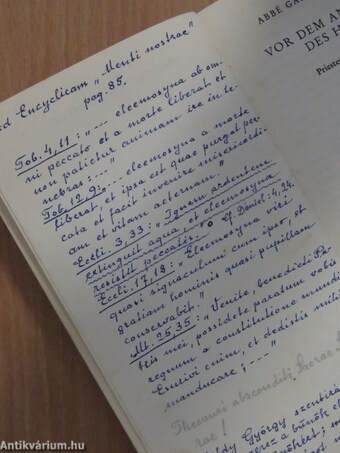 ad Encyclicam „Menti nostrae"
pag. 85.
Tob. 4,11: „--- eleemosyna ab om-
ni peccato et a morte liberat et
non patietur animam ire in te-
nebras; ---"
Tob. 12,9: „--- eleemosyna a morte
liberat, et ipsa est quae purgat pec-
cata et facit invenire misericordi-
am et vitam aeternam."
Eccli. 3,33: „Ignem ardentem
extinguit aqua, et eleemosyna
resistit peccatis." Cf. Daniel: 4,24.
Eccli. 17,18: „Eleemosyna viri
quasi signaculum cum ipso, et
gratiam hominis quasi pupillam
conservabit."
Mt. 25,35: „Venite, benedicti Pa-
tris mei, possidete paratum vobis
regnum a constitutione mundi
Esurivi enim, et dedistis mihi
manducare; ---"
Thesauri absconditi Sacrae
György szentírá
ABBÉ GA
VOR DEM AN
DES H
Priester
Antikvárium.hu